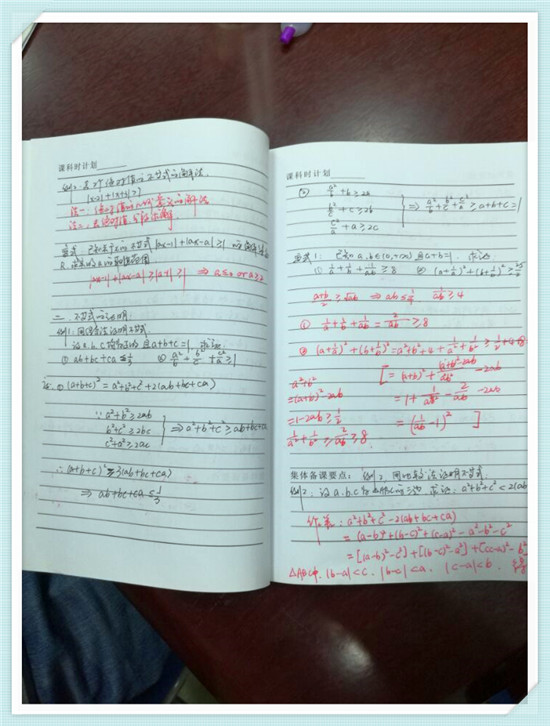 课科时计划
例2. 含2个绝对值的不等式的解法.
|x-2|+|x+1|≥1
法一: 绝对值的几何意义的解法
法二: 去绝对值, 分段求解
变式 已知关于x的不等式 |ax-1|+|ax-a|≥1 的解集为
R, 求实数a的取值范围
|ax-1|+|ax-a|≥|a-1|≥1 ⇒ a≤0 or a≥2
二. 不等式的证明.
例1. 用综合法证明不等式.
设a.b.c均为正数 且a+b+c=1, 求证:
① ab+bc+ca≤1/3 ② a²/b+b²/c+c²/a≥1
证: ① (a+b+c)²=a²+b²+c²+2(ab+bc+ca)
∵ a²+b²≥2ab
b²+c²≥2bc
c²+a²≥2ac
⇒ a²+b²+c²≥ab+bc+ca
∴ (a+b+c)²≥3(ab+bc+ca)
⇒ ab+bc+ca≤1/3
课科时计划
② a²/b+b≥2a
b²/c+c≥2b
c²/a+a≥2c
⇒ a²/b+b²/c+c²/a≥a+b+c=1
变式1: 已知a,b∈(0,+∞) 且a+b=1, 求证:
① 1/a+1/b+1/ab≥8 ② (a+1/a)²+(b+1/b)²≥25/2
(a+b)/2≥√ab ⇒ ab≤1/4 1/ab≥4
① 1/a+1/b+1/ab=2/ab≥8
② (a+1/a)²+(b+1/b)²=a²+b²+4+1/a²+1/b²≥1/2+4+8
a²+b²
=(a+b)²-2ab
=1-2ab≥1/2
1/a²+1/b²≥2/ab≥8
集体备课要点: 例2, 用比较法证明不等式.
例2: 设a.b.c为△ABC的三边, 求证: a²+b²+c²<2(ab
作差: a²+b²+c²-2(ab+bc+ca)
=(a-b)²+(b-c)²+(c-a)²-a²-b²-c²
=[(a-b)²-c²]+[(b-c)²-a²]+[(c-a)²-b²
△ABC中, |b-a|<c, |b-c|<a, |c-a|<b.